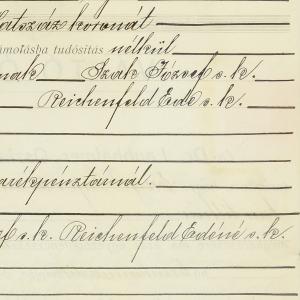 hatszáz koronát
számolásba tudósítás nélkül
nak Izak József s. k.
Reichenfeld Ede s. k.
arékpénztárnál.
f s. k. Reichenfeld Edéné s. k.